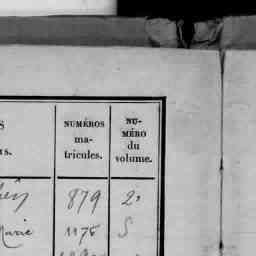 S
NUMÉROS
ma-
tricules.
NU-
MÉRO
du
volume.
rs.
879 2.
Marie 1178 S